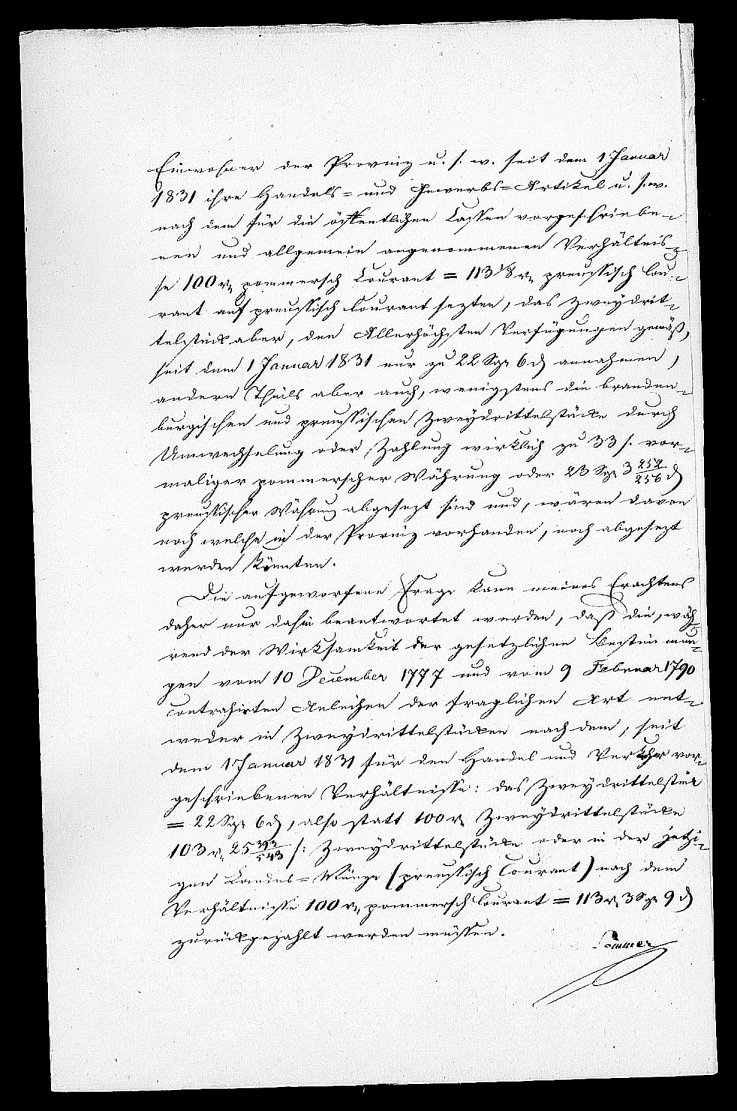 Einwohner der Provinz u. s. w. seit dem 1 Januar
1831 ihre Handels= und Gewerbs=Artikel u. s. w.
nach dem für die öffentlichen Cassen vorgeschriebe=
nen und allgemein angenommenen Verhältnis=
se 100 rℓ pommersch Courant = 113 1/8 rℓ preussisch Cou=
rant auf preussisch Courant sezten, das Zweydrit=
telstück aber, den Allerhöchsten Verfügungen gemäß,
seit dem 1 Januar 1831 nur zu 22 Sgr 6 ₰ annahmen,
andern Theils aber auch, wenigstens die branden=
burgischen und preussischen Zweydrittelstücke durch
Umwechselung oder Zahlung wirklich zu 33 s. vor=
maliger pommerscher Währung oder 23 Sgr 3 252/256 ₰
preussischer Währung abgesezt sind und, wären davon
noch welche in der Provinz vorhanden, noch abgesezt
werden könnten.
Die aufgeworfene Frage kann meines Erachtens
daher nur dahin beantwortet werden, daß die, wäh=
rend der Wirksamkeit der gesetzlichen Bestimmun=
gen vom 10 December 1777 und vom 9 Februar 1790
contrahirten Anleihen der fraglichen Art ent=
weder in Zweydrittelstücken nach dem, seit
dem 1 Januar 1831 für den Handel und Verkehr vor=
geschriebenen Verhältnisse: das Zweydrittelstück
= 22 Sgr 6 ₰, also statt 100 rℓ Zweydrittelstücke
103 rℓ 25 393/543 s: Zweydrittelstücke oder in der jetzi=
gen Landes=Münze (preussisch Courant) nach dem
Verhältnisse 100 rℓ pommersch Courant = 113 rℓ 3 Sgr 9 ₰
zurückgezahlt werden müssen.
Pommer